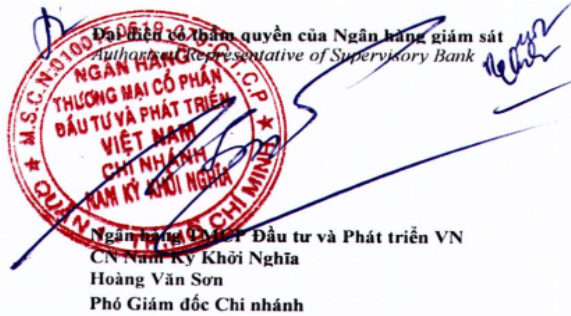 Đại diện có thẩm quyền của Ngân hàng giám sát
Authorised Representative of Supervisory Bank
NGÂN HÀNG
THƯƠNG MẠI CỔ PHẦN
ĐẦU TƯ VÀ PHÁT TRIỂN
VIỆT NAM
CHI NHÁNH
NAM KỲ KHỞI NGHĨA
M.S.C.N:
QUẬN 1 - TP HỒ CHÍ MINH
Ngân hàng TMCP Đầu tư và Phát triển VN
CN Nam Kỳ Khởi Nghĩa
Hoàng Văn Sơn
Phó Giám đốc Chi nhánh